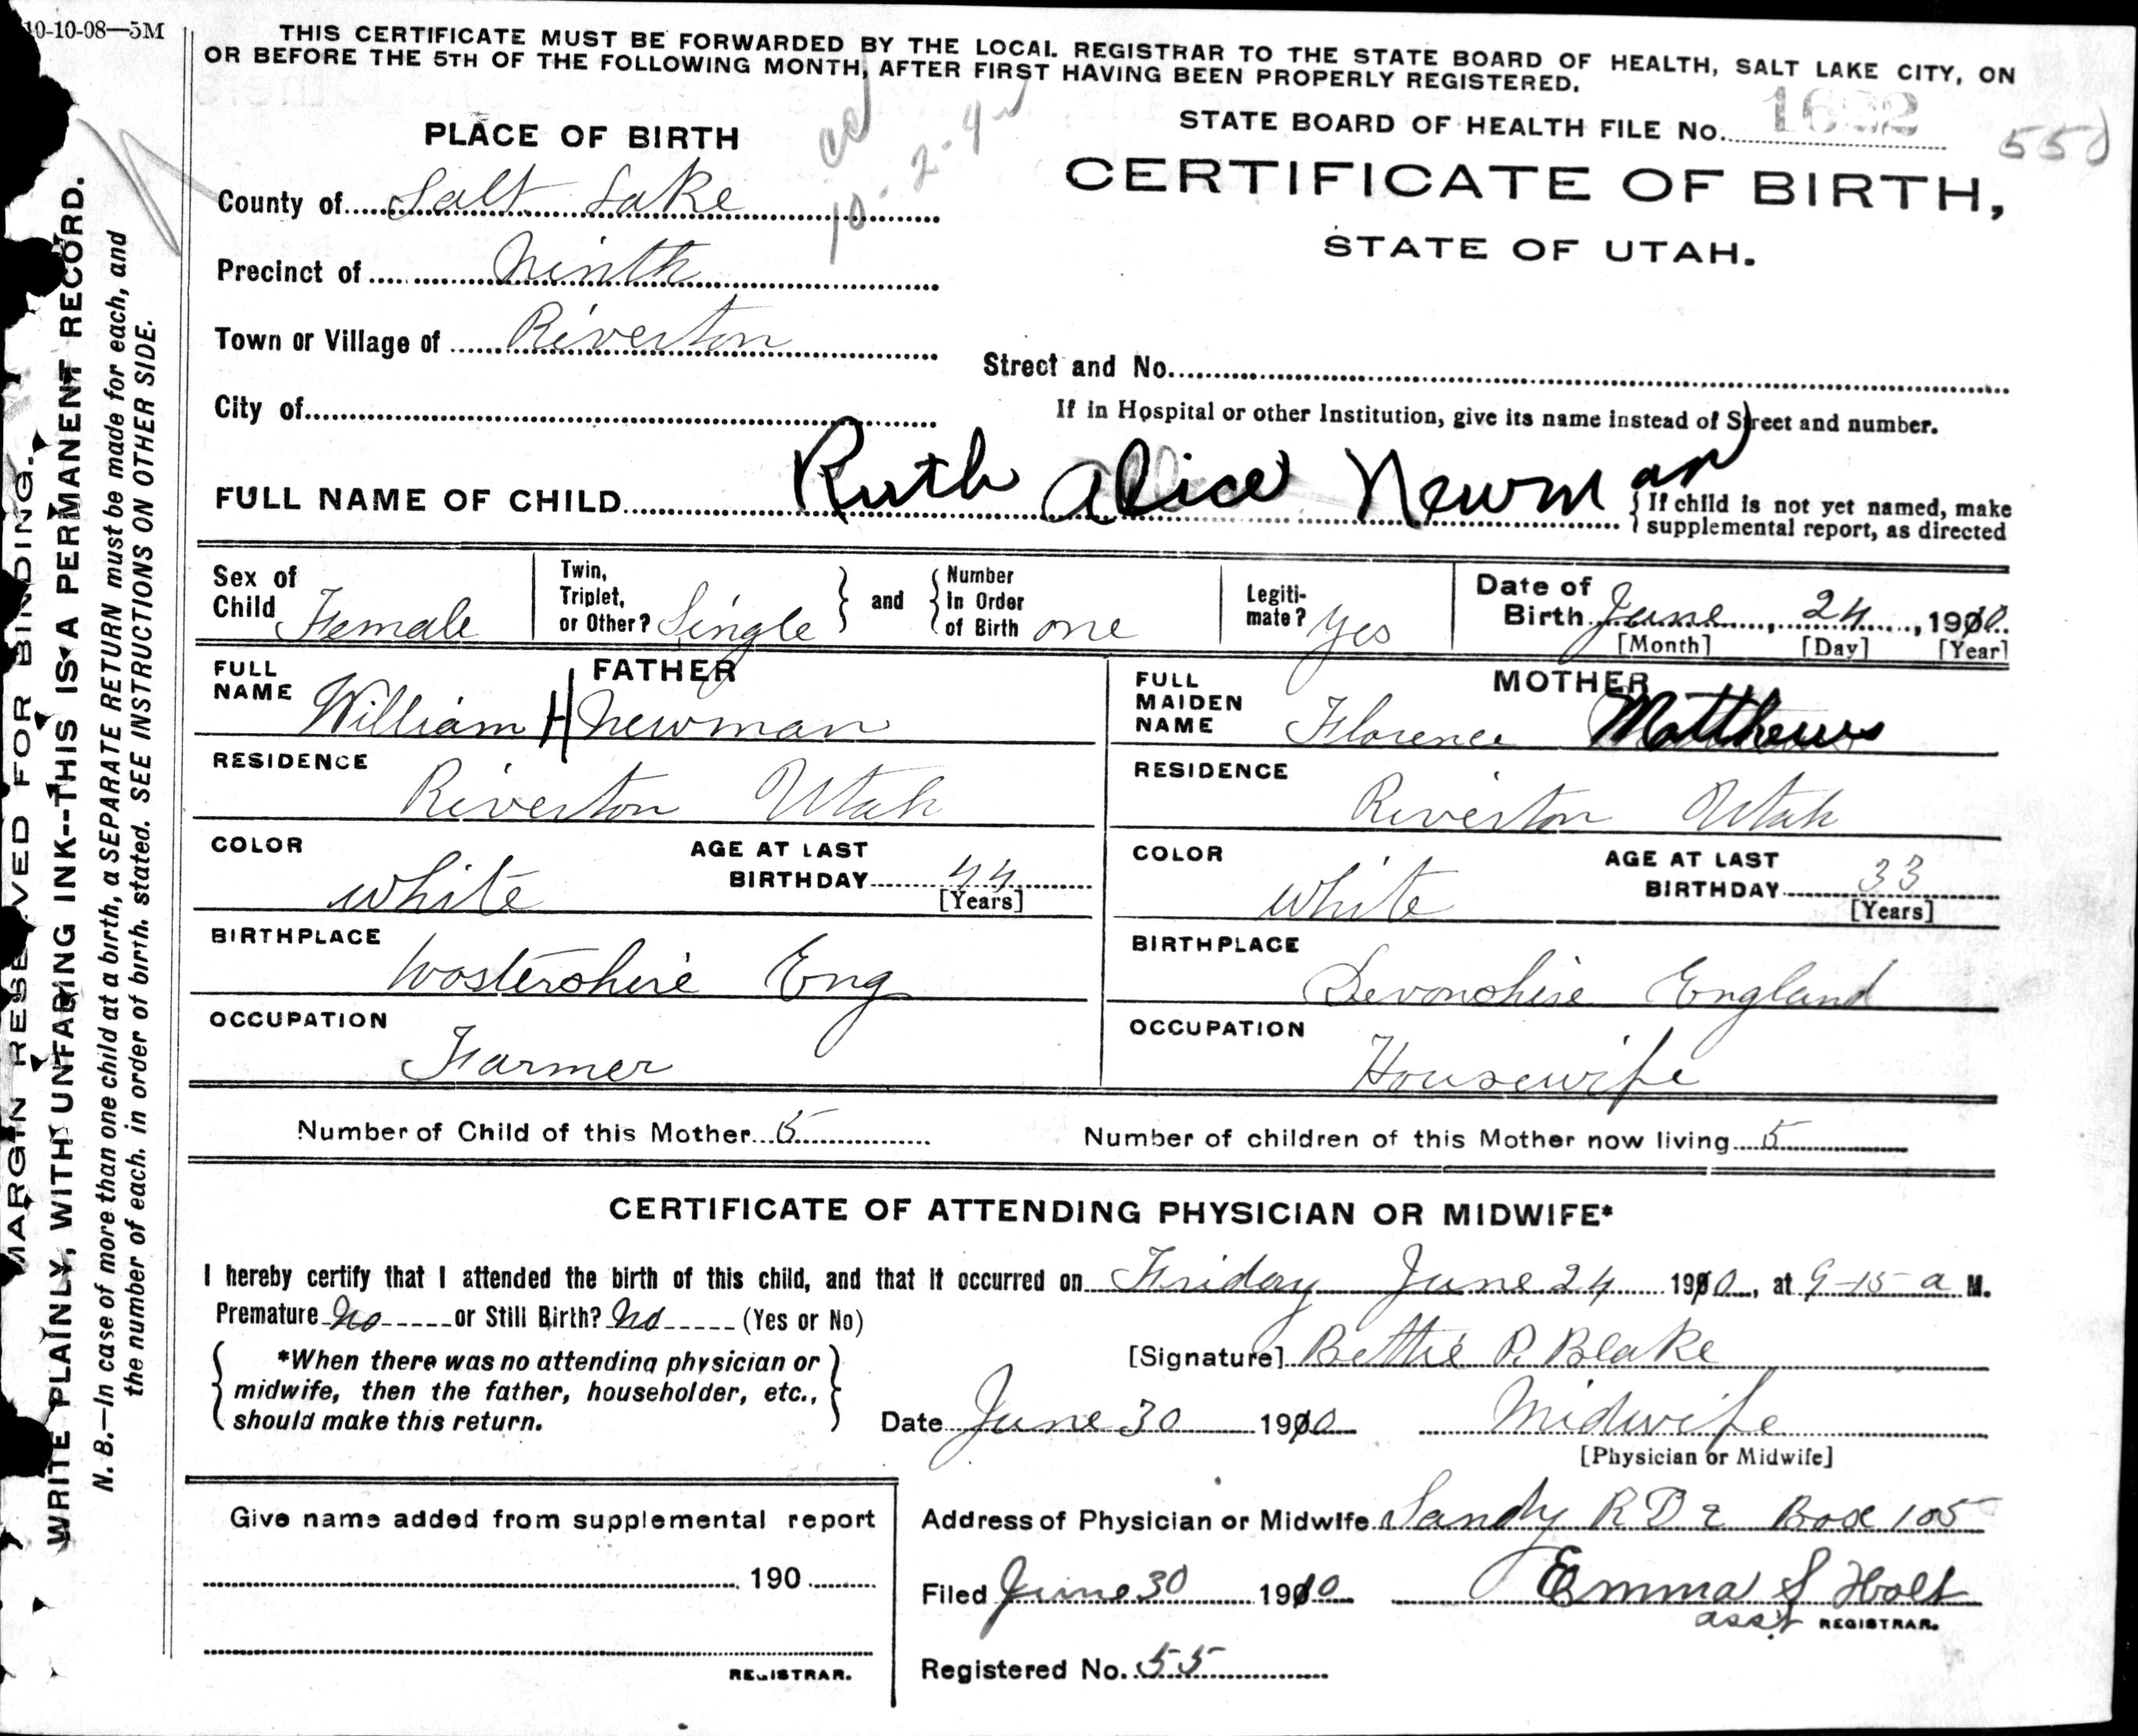 10-10-08—5M
THIS CERTIFICATE MUST BE FORWARDED BY THE LOCAL REGISTRAR TO THE STATE BOARD OF HEALTH, SALT LAKE CITY, ON
OR BEFORE THE 5TH OF THE FOLLOWING MONTH, AFTER FIRST HAVING BEEN PROPERLY REGISTERED.
STATE BOARD OF HEALTH FILE No. 1622
550
PLACE OF BIRTH
10-2-4
CERTIFICATE OF BIRTH,
STATE OF UTAH.
County of Salt Lake
Precinct of Ninth
Town or Village of Riverton
Street and No.
City of
If in Hospital or other Institution, give its name instead of Street and number.
FULL NAME OF CHILD Ruth Alice Newman
If child is not yet named, make
supplemental report, as directed
Sex of Child Female
Twin, Triplet, or Other? Single and Number In Order of Birth one
Legiti-mate? Yes
Date of Birth June, 24, 1910
[Month] [Day] [Year]
FATHER
FULL NAME William H Newman
MOTHER
FULL MAIDEN NAME Florence Matthews
RESIDENCE Riverton Utah
RESIDENCE Riverton Utah
COLOR white AGE AT LAST BIRTHDAY 44 [Years]
COLOR White AGE AT LAST BIRTHDAY 33 [Years]
BIRTHPLACE Wostershire Eng
BIRTHPLACE Devonshire England
OCCUPATION Farmer
OCCUPATION Housewife
Number of Child of this Mother 5
Number of children of this Mother now living 5
CERTIFICATE OF ATTENDING PHYSICIAN OR MIDWIFE*
I hereby certify that I attended the birth of this child, and that it occurred on Friday June 24 1910, at 9-15 a M.
Premature No or Still Birth? No (Yes or No)
*When there was no attending physician or
midwife, then the father, householder, etc.,
should make this return.
[Signature] Bettie P. Blake
Date June 30 1910 Midwife
[Physician or Midwife]
Give name added from supplemental report
190
REGISTRAR.
Address of Physician or Midwife Sandy R D 2 Box 105
Filed June 30 1910 Emma S Holt
asst REGISTRAR.
Registered No. 55
MARGIN RESERVED FOR BINDING.
WRITE PLAINLY, WITH UNFADING INK--THIS IS A PERMANENT RECORD.
N. B.—In case of more than one child at a birth, a SEPARATE RETURN must be made for each, and
the number of each, in order of birth, stated. SEE INSTRUCTIONS ON OTHER SIDE.